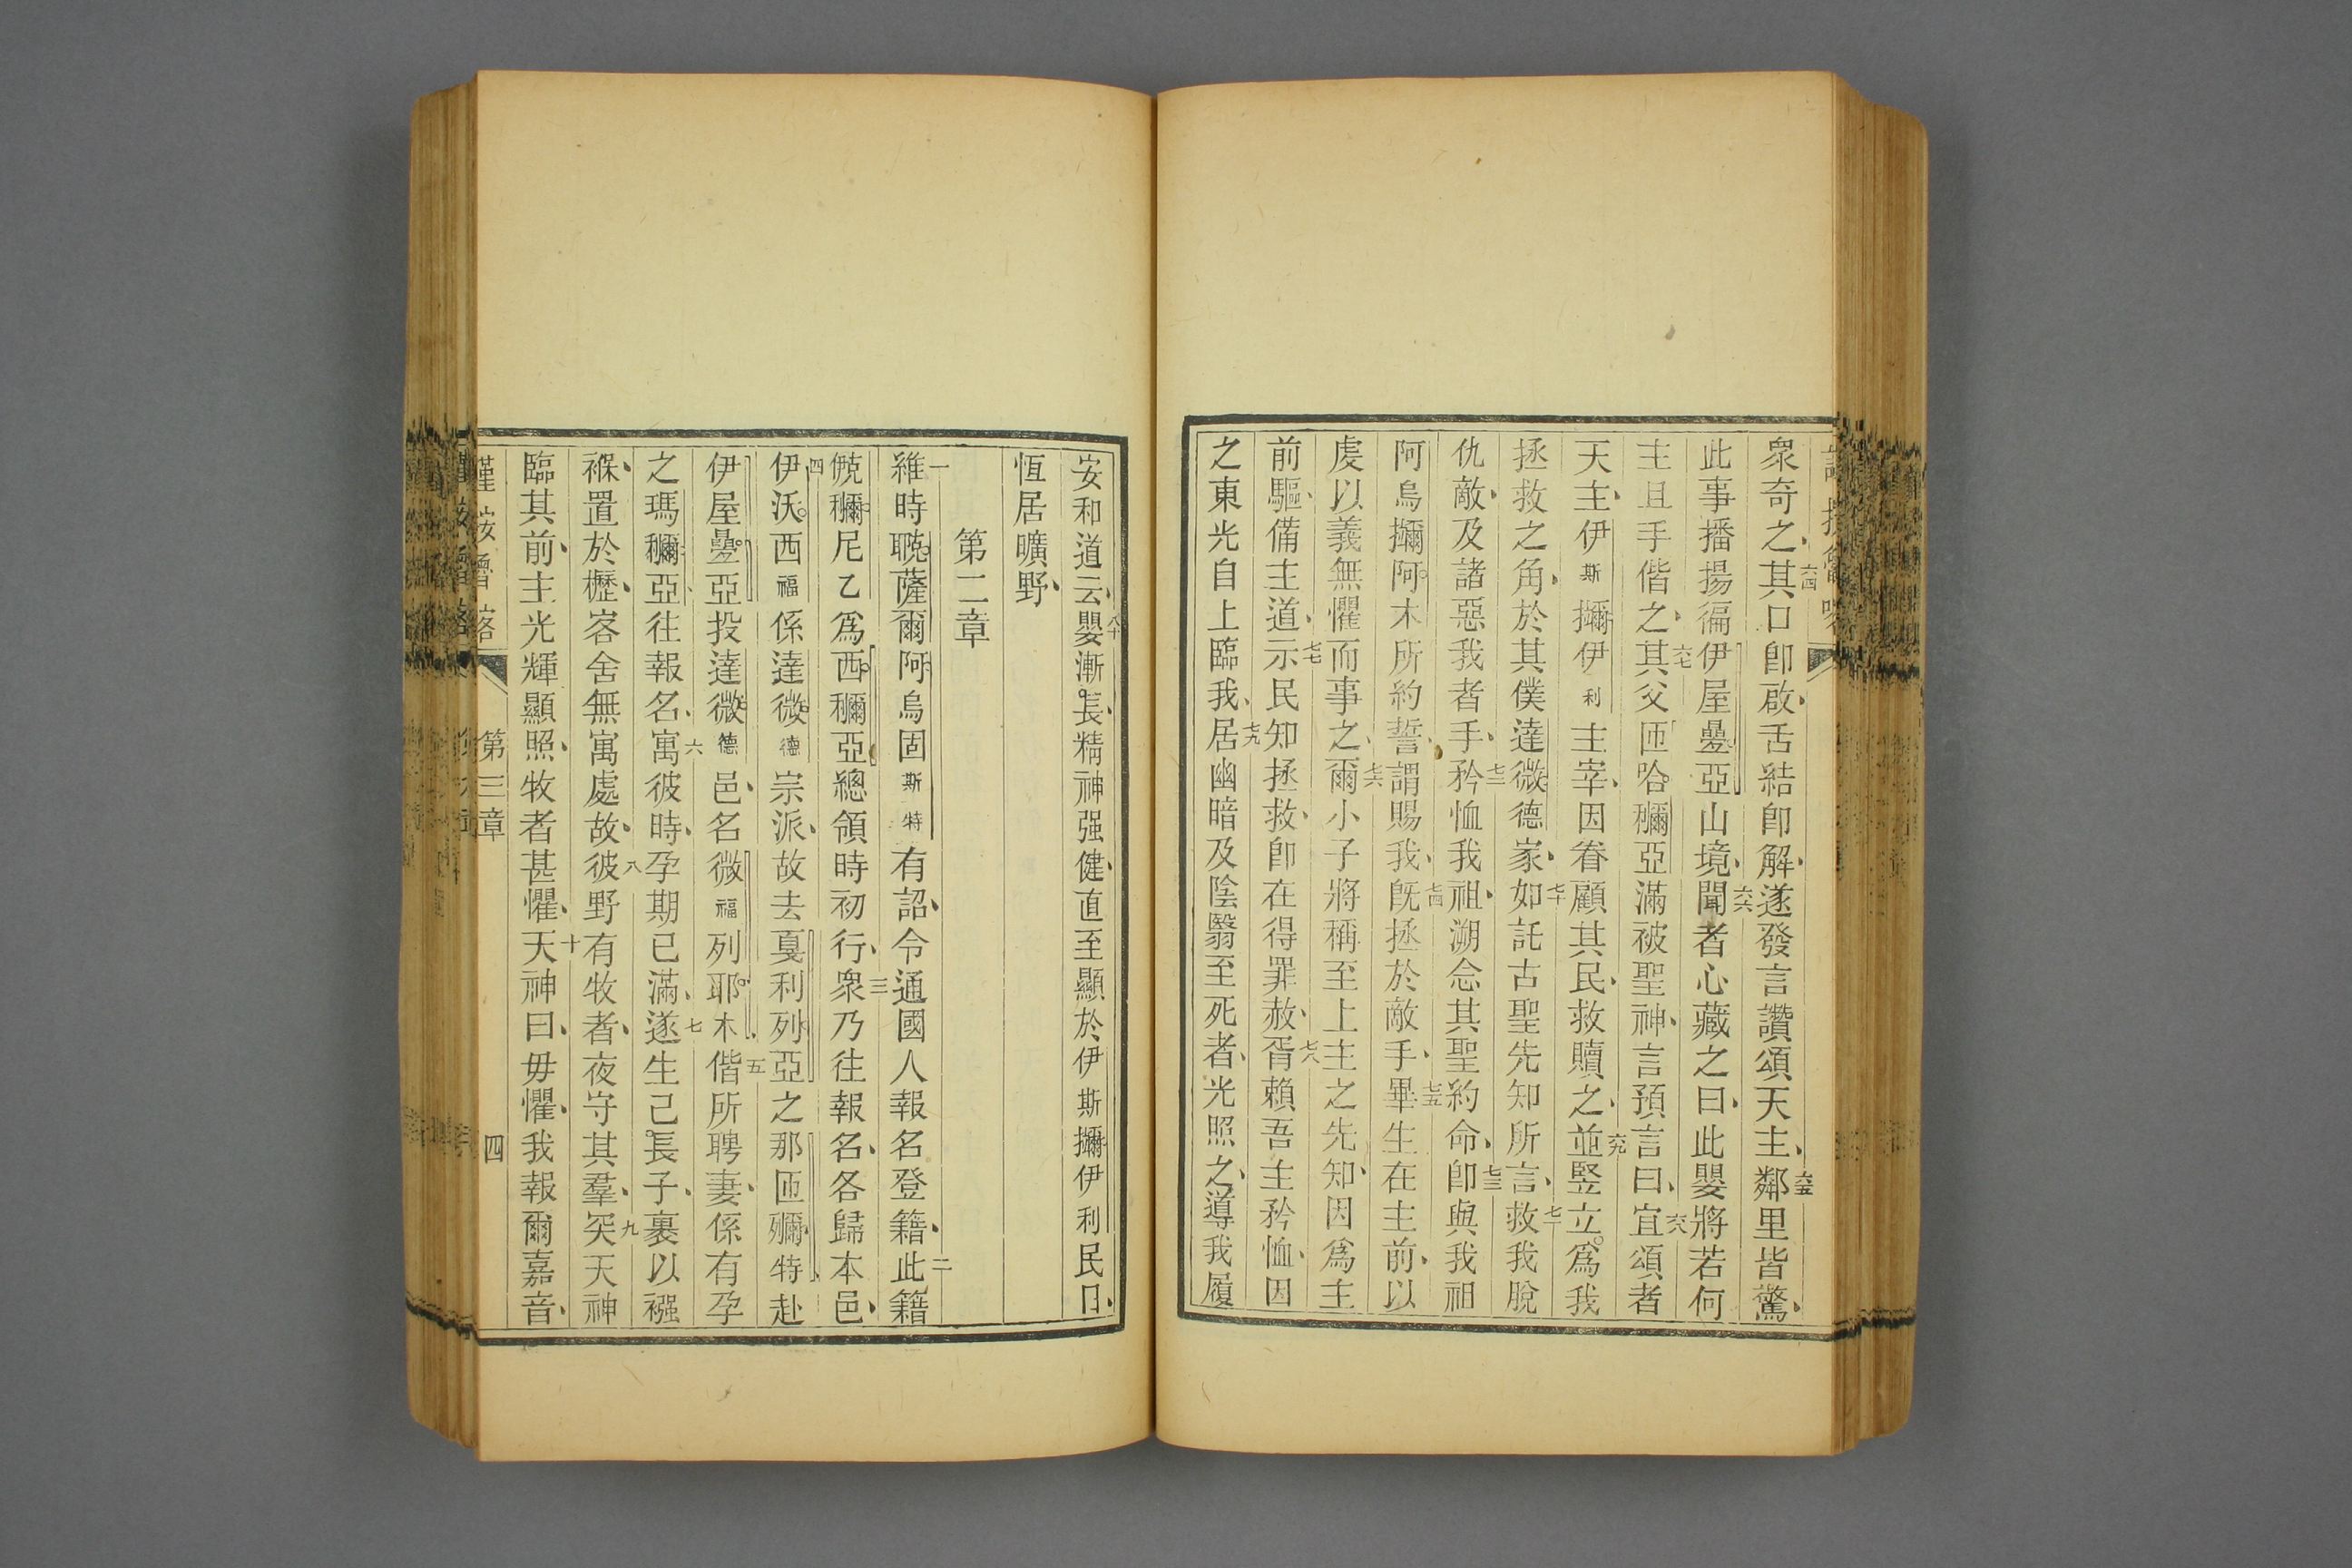 衆奇之、六四其口卽啟、舌結卽解、遂發言讚頌天主、六五鄰里皆驚、
此事播揚徧伊屋亞山境、六六聞者心藏之曰、此嬰將若何
主且手偕之、六七其父匝哈亞滿被聖神、言預言曰、六八宜頌者
天主、伊斯伊利主宰、因眷顧其民、救贖之、六九並竪立爲我
拯救之角、於其僕達微德家、七十如託古聖先知所言、七一救我脫
仇敵、及諸惡我者手、七二矜恤我祖、溯念其聖約命、七三卽與我祖
阿烏阿木所約誓、謂賜我、七四旣拯於敵手、七五畢生在主前、以
虔以義無懼而事之、七六爾小子將稱至上主之先知、因爲主
前驅、備主道、七七示民知拯救、卽在得罪赦、七八胥賴吾主矜恤、因
之東光自上臨我、七九居幽暗及陰翳至死者、光照之、導我履
安和道云、八十嬰漸長、精神强健、直至顯於伊斯伊利民日、
恆居曠野、
第二章
一維時薩爾阿烏固斯特有詔、令通國人報名登籍、二此籍
尼乙爲西亞總領時初行、三衆乃往報名、各歸本邑、
四伊沃西福係達微德宗派、故去戛利列亞之那匝特、赴
伊屋亞投達微德邑、名微福列耶木、五偕所聘妻、係有孕
之瑪亞往報名、六寓彼時、孕期已滿、七遂生己長子、裹以襁
褓、置於櫪、客舍無寓處故、八彼野有牧者、夜守其羣、九突天神
臨其前、主光輝顯照、牧者甚懼、十天神曰、毋懼、我報爾嘉音、
第三章
四